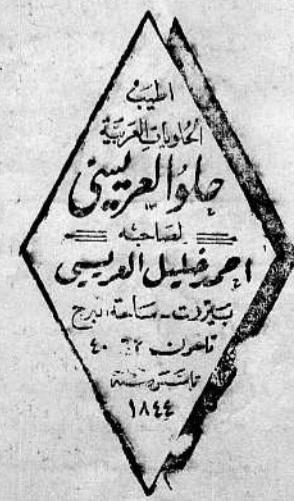 اطيب
الحلويات العربية
حلو العريسي
لصاحبه
احمد خليل العريسي
بيروت - ساحة البرج
تلفون ٤٠
تأسس سنة
١٨٤٤